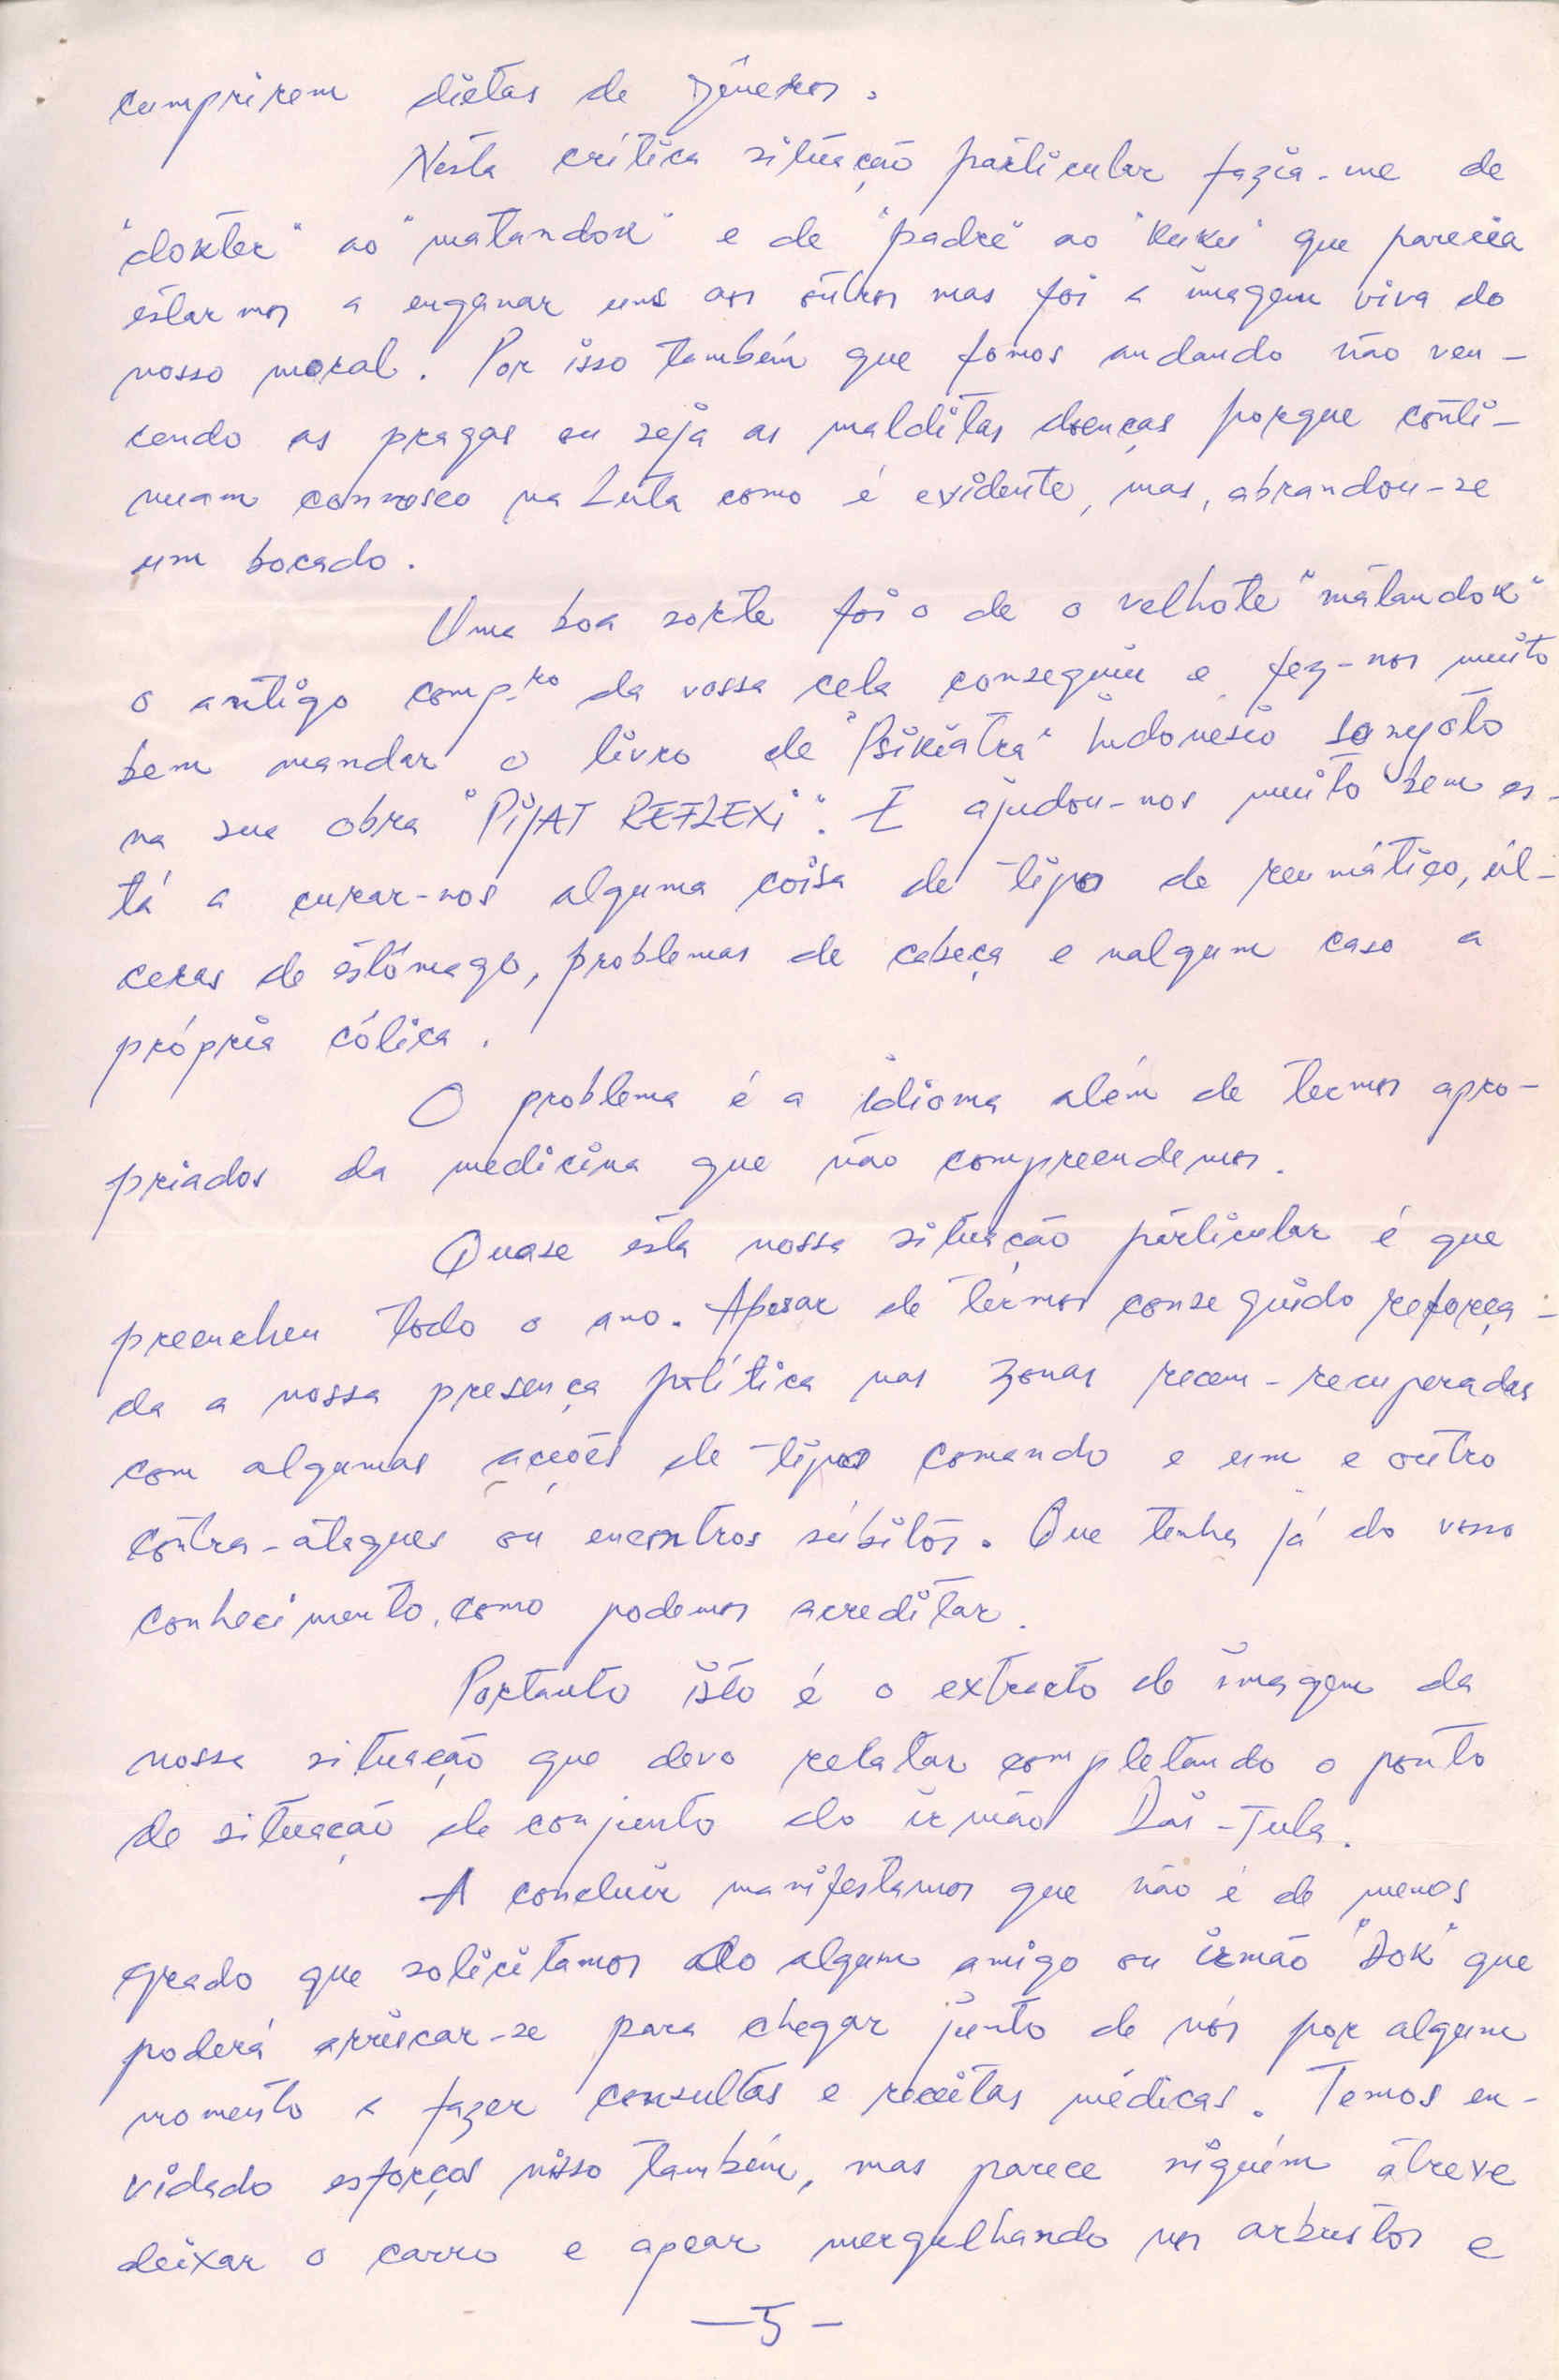 cumprirem dietas de géneros.
Nesta crítica situação particular fazia-me de
"dokter" ao "matandok" e de "padre" ao "kuku" que parecia
estarmos a enganar uns aos outros mas foi a imagem viva do
nosso moral. Por isso também que fomos andando não ven-
cendo as pragas ou seja as malditas doenças porque conti-
nuam connosco na Luta como é evidente, mas, abrandou-se
um bocado.
Uma boa sorte foi o de o velhote "matandok"
o antigo comp.ro da vossa cela conseguiu e fez-nos muito
bem mandar o livro de "Psikiatra" Indonésio
na sua obra "PIJAT REFLEXI". E ajudou-nos muito bem es-
tá a curar-nos alguma coisa de tipo de reumático, úl-
ceras de estômago, problemas de cabeça e nalgum caso a
própria cólica.
O problema é a idioma além de termos apro-
priados da medicina que não compreendemos.
Quase esta nossa situação particular é que
preencheu todo o ano. Apesar de termos conseguido reforça-
da a nossa presença política nas zonas recem-recuperadas
com algumas acções de tipo comando e um e outro
contra-ataques ou encontros súbitos. Que tenha já do vosso
conhecimento, como podemos acreditar.
Portanto isto é o extracto de imagem da
nossa situação que devo relatar completando o ponto
de situação de conjunto do irmão Dai-Tula.
A concluir manifestamos que não é de menos
grado que solicitamos do algum amigo ou irmão "Dok" que
poderá arriscar-se para chegar junto de nós por algum
momento a fazer consultas e receitas médicas. Temos en-
vidado esforços nisso também, mas parece niguém atreve
deixar o carro e apear mergulhando nos arbustos e
—5-